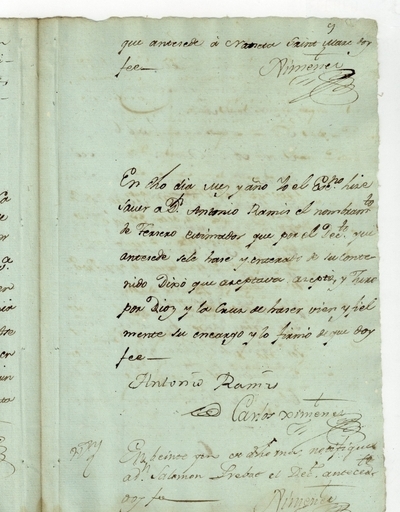 9
que antesede à Nantia Saint Marc doy
fee
Ximenez
En dho dia mes y año Yo el Essno hise
Saver a Dn Antonio Ramis el nombramto
de Tersero estimador que por el decto que
antesede se le hase y enterado de su conte
nido Dixo que aseptava aseptó, y Juro
por Dios y la Cruz de haser vien y fiel
mente su encargo y lo firmó de que doy
fee
Antonio Ramis
Carlos Ximenez
En veinte
a Dn Salomon Prebot el antecede
doy fe
Ximenez